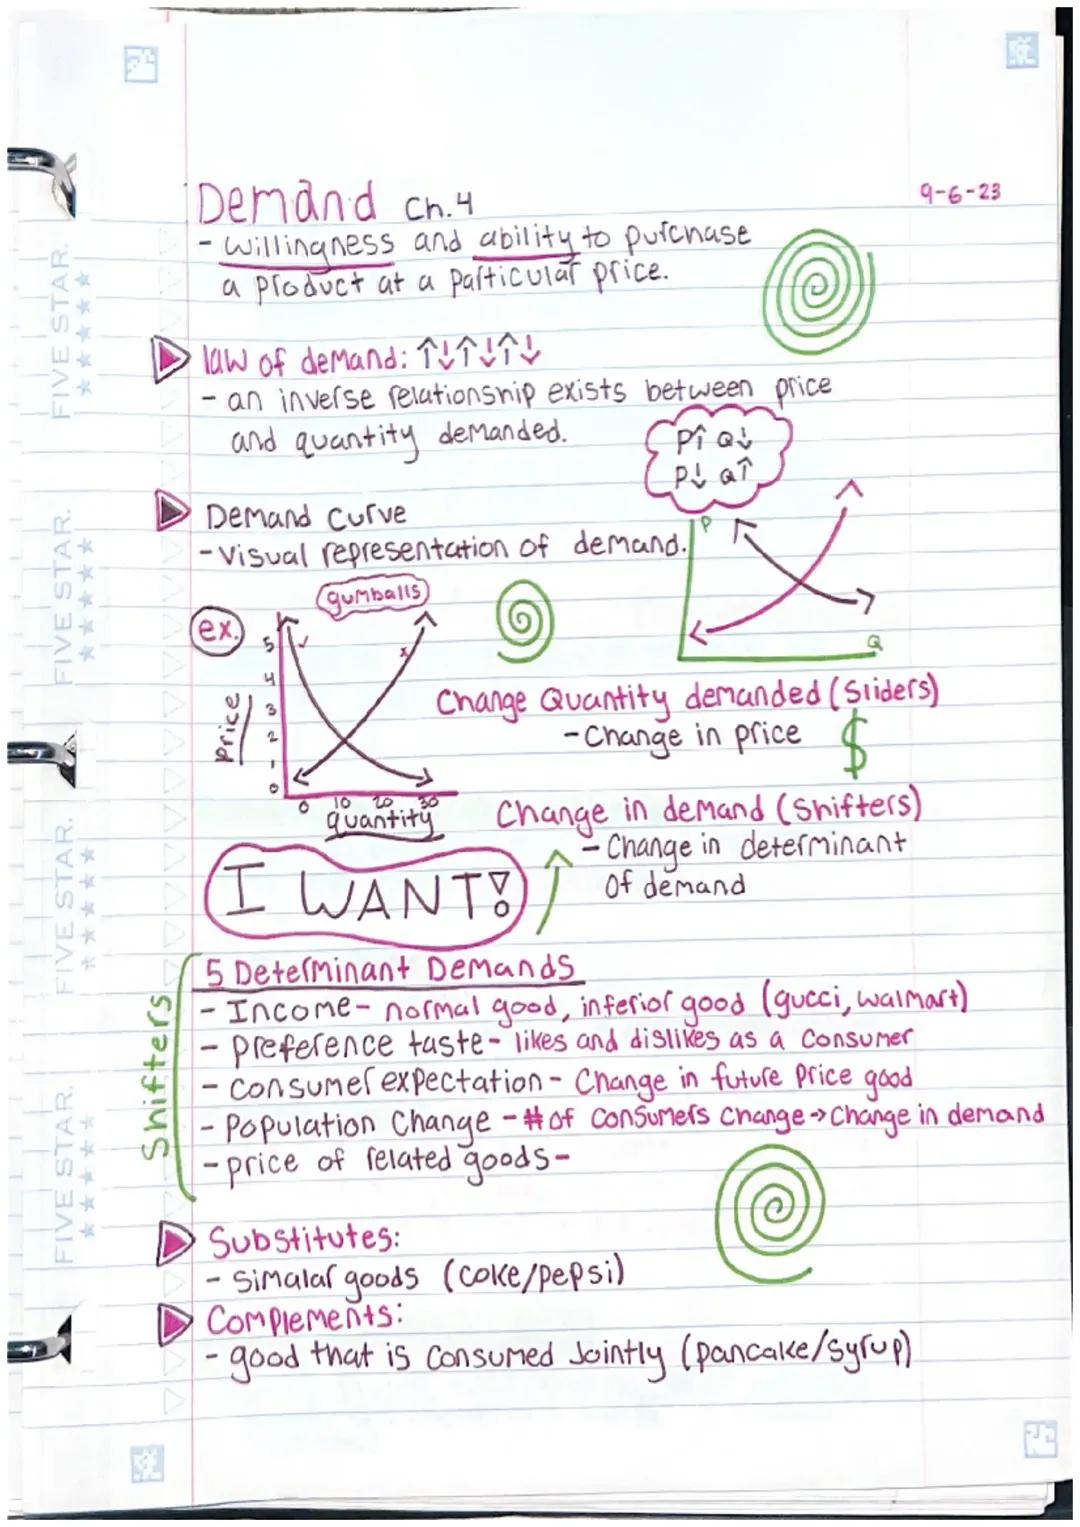 Demand Ch.4
9-6-23
- willingness and ability to purchase
a product at a particular price.
law of demand: ↑↓↑↓↑↓
- an inverse relationship exists between price
and quantity demanded.
P↑ Q↓
P↓ Q↑
Demand Curve
- Visual representation of demand.
P
Q
ex.
gumballs
5
4
3
2
1
0
price
0 10 20 30
quantity
Change Quantity demanded (Sliders)
- Change in price
$
Change in demand (Shifters)
- Change in determinant
of demand
I WANT!
Shifters
5 Determinant Demands
- Income - normal good, inferior good (gucci, walmart)
- preference taste - likes and dislikes as a consumer
- consumer expectation - Change in future price good
- Population Change - # of consumers change → Change in demand
- price of related goods -
Substitutes:
- Simalar goods (coke/pepsi)
Complements:
- good that is consumed Jointly (pancake/syrup)
FIVE STAR.
FIVE STAR.
FIVE STAR.
FIVE STAR.